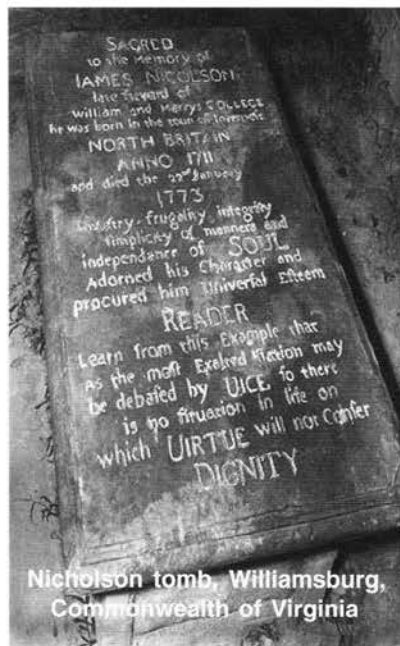 SACRED
to the Memory of
IAMES NICOLSON
late Steward of
William and Marrys COLLEGE
he was born in the town of Inverness
NORTH BRITAIN
ANNO 1711
and died the 22nd January
1773
Industry, frugality, integrity
simplicity of manners and
independance of SOUL
Adorned his Character and
procured him Universal Esteem
READER
Learn from this Example that
as the most Exalted Station may
be debased by UICE so there
is no situation in life on
which UIRTUE will not Confer
DIGNITY
Nicholson tomb, Williamsburg,
Commonwealth of Virginia